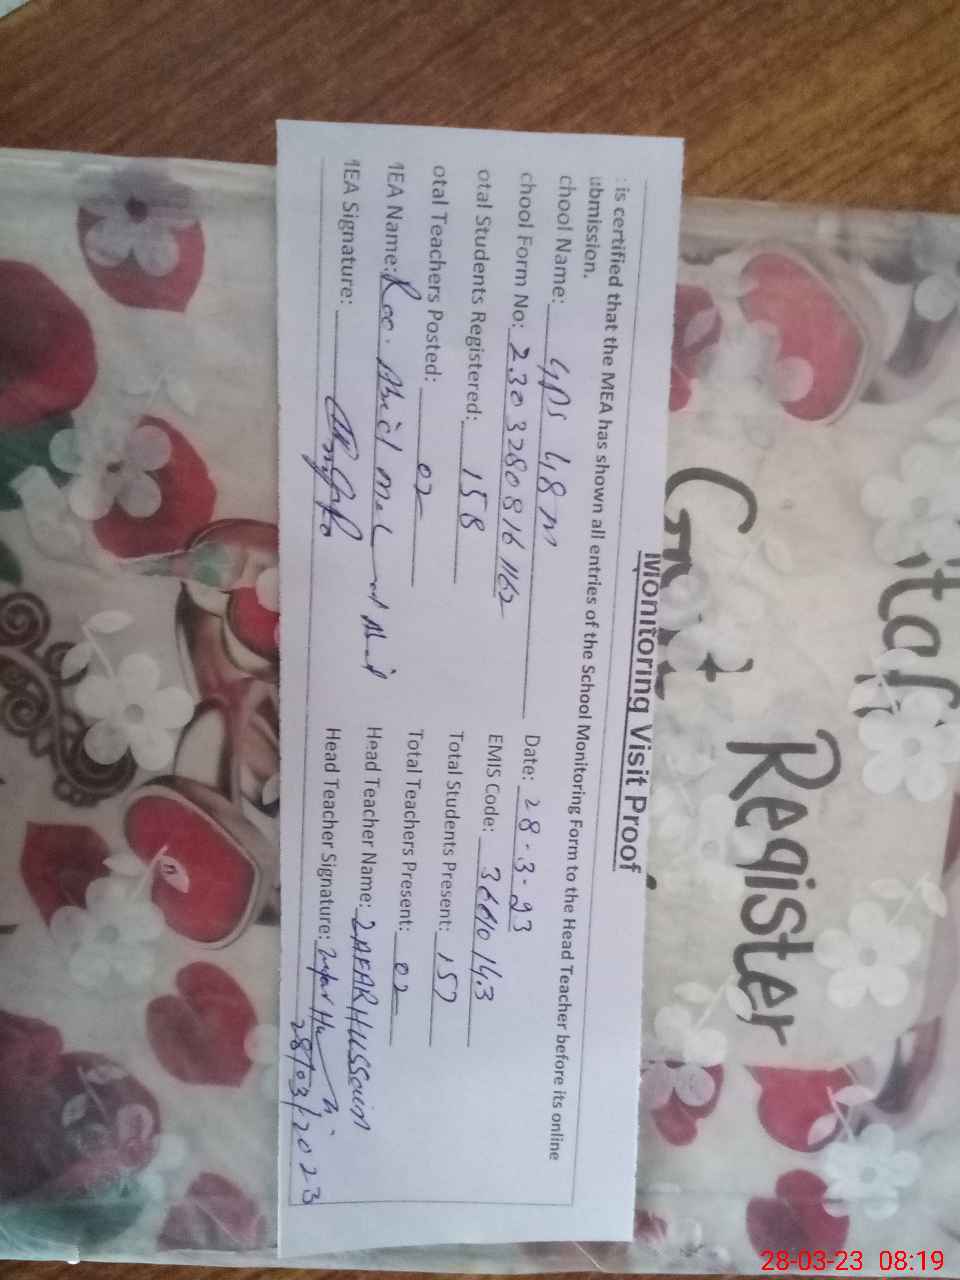 Monitoring Visit Proof
is certified that the MEA has shown all entries of the School Monitoring Form to the Head Teacher before its online
ubmission.
chool Name: GPS 48 M
Date: 28-3-23
chool Form No: 2303280816 1162
EMIS Code:
otal Students Registered: 158
Total Students Present: 157
otal Teachers Posted: 02
Total Teachers Present: 02
MEA Name: Rao. Abid
Head Teacher Name: ZAFAR HUSSain
MEA Signature:
Head Teacher Signature: Zafar
28/03/2023
Gift Register
28-03-23 08:19